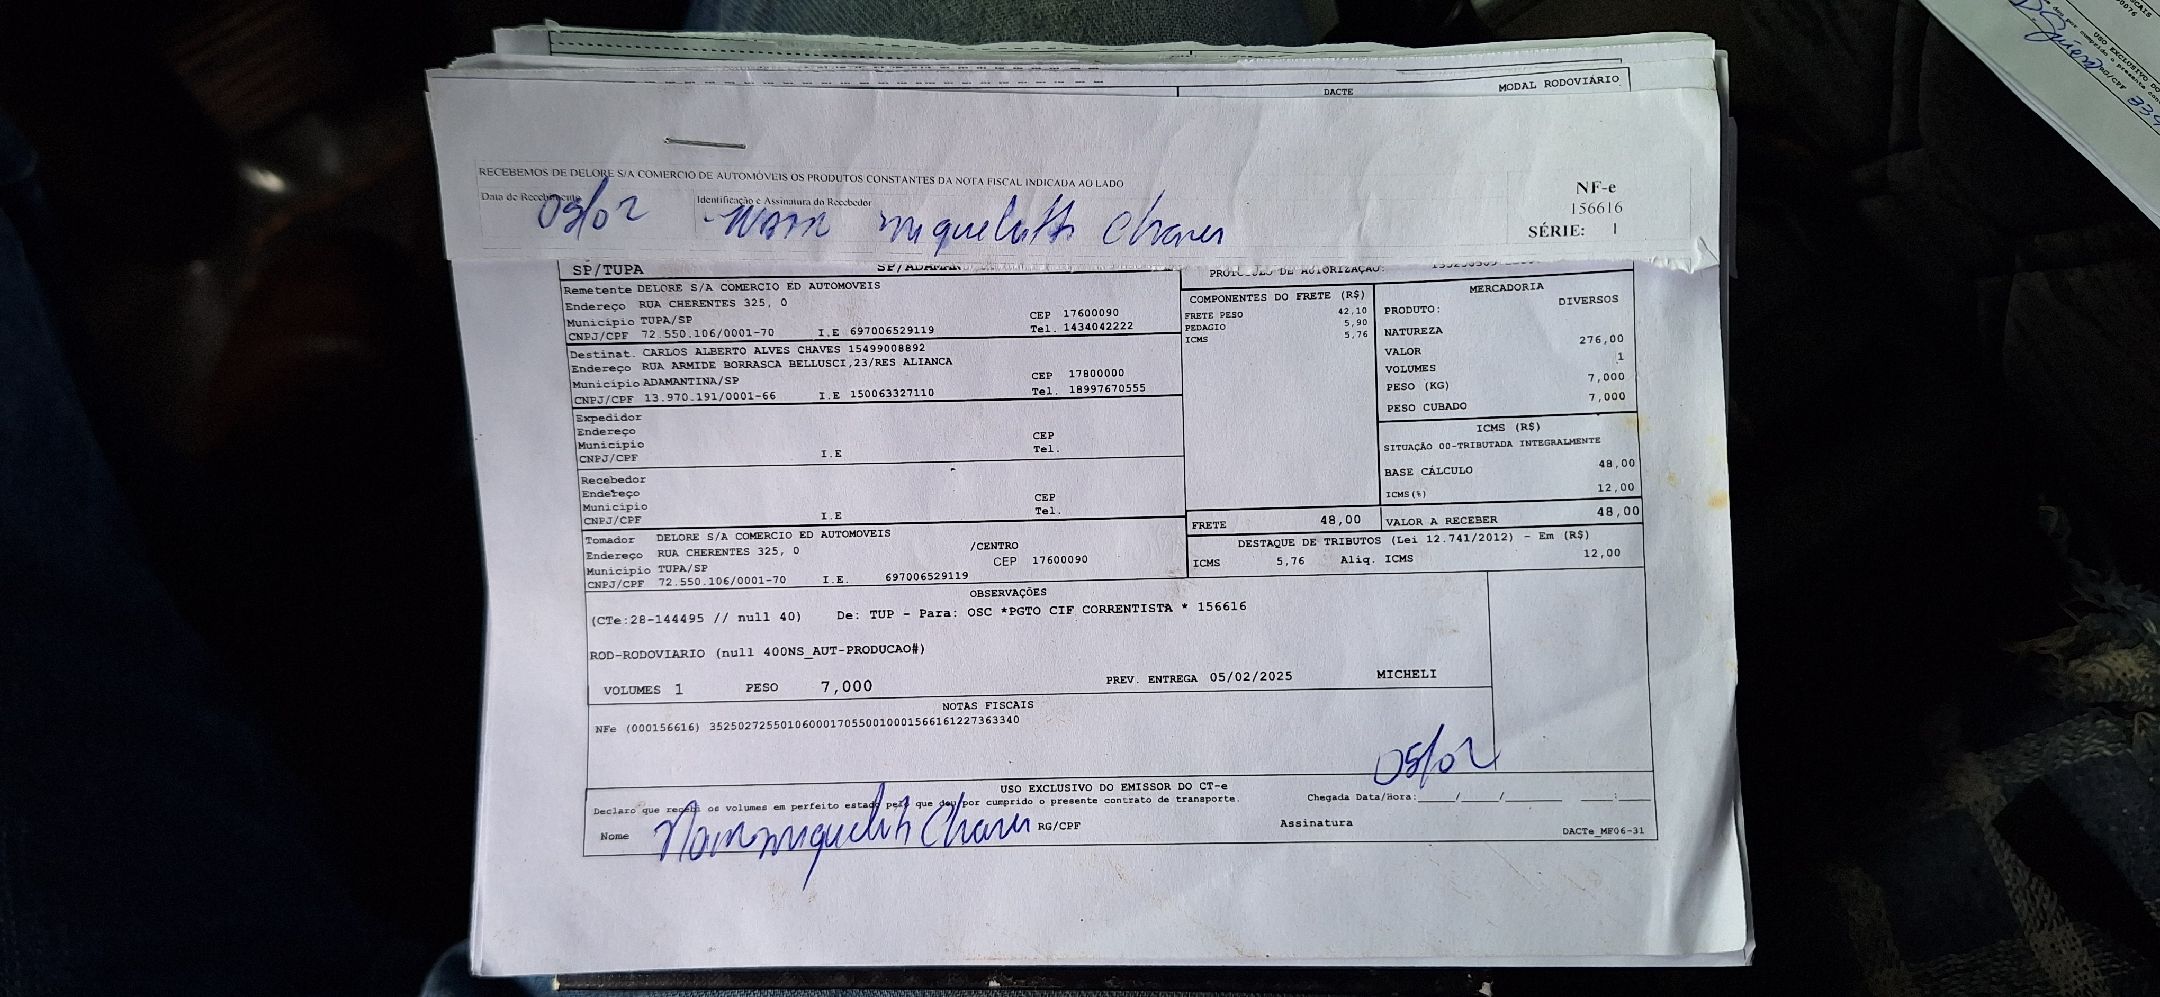 DACTE
MODAL RODOVIÁRIO
RECEBEMOS DE DELORE S/A COMERCIO DE AUTOMÓVEIS OS PRODUTOS CONSTANTES DA NOTA FISCAL INDICADA AO LADO
Data de Recebimento
Identificação e Assinatura do Recebedor
05/02
Chaves
NF-e
156616
SÉRIE: 1
SP/TUPA
PROTOCOLO DE AUTORIZAÇÃO:
Remetente DELORE S/A COMERCIO ED AUTOMOVEIS
Endereço RUA CHERENTES 325, 0
Município TUPA/SP CEP 17600090
CNPJ/CPF 72.550.106/0001-70 I.E 697006529119 Tel. 1434042222
Destinat. CARLOS ALBERTO ALVES CHAVES 15499008892
Endereço RUA ARMIDE BORRASCA BELLUSCI,23/RES ALIANCA
Município ADAMANTINA/SP CEP 17800000
CNPJ/CPF 13.970.191/0001-66 I.E 150063327110 Tel. 18997670555
Expedidor
Endereço
Município CEP
CNPJ/CPF I.E Tel.
Recebedor
Endereço
Município CEP
CNPJ/CPF I.E Tel.
Tomador DELORE S/A COMERCIO ED AUTOMOVEIS
Endereço RUA CHERENTES 325, 0 /CENTRO
Município TUPA/SP CEP 17600090
CNPJ/CPF 72.550.106/0001-70 I.E. 697006529119
COMPONENTES DO FRETE (R$)
FRETE PESO 42,10
PEDAGIO 5,90
ICMS 5,76
MERCADORIA
PRODUTO: DIVERSOS
NATUREZA
VALOR 276,00
VOLUMES 1
PESO (KG) 7,000
PESO CUBADO 7,000
ICMS (R$)
SITUAÇÃO 00-TRIBUTADA INTEGRALMENTE
BASE CÁLCULO 48,00
ICMS(%) 12,00
FRETE 48,00
VALOR A RECEBER 48,00
DESTAQUE DE TRIBUTOS (Lei 12.741/2012) - Em (R$)
ICMS 5,76 Aliq. ICMS 12,00
OBSERVAÇÕES
(CTe:28-144495 // null 40) De: TUP - Para: OSC *PGTO CIF CORRENTISTA * 156616
ROD-RODOVIARIO (null 400NS_AUT-PRODUCAO#)
VOLUMES 1 PESO 7,000 PREV. ENTREGA 05/02/2025 MICHELI
NOTAS FISCAIS
NFe (000156616) 35250272550106000170550010001566161227363340
05/02
USO EXCLUSIVO DO EMISSOR DO CT-e
Declaro que recebi os volumes em perfeito estado pelo que dou por cumprido o presente contrato de transporte. Chegada Data/Hora:____/____/______ ____:____
Nome Chaves RG/CPF Assinatura
DACTe_MF06-31